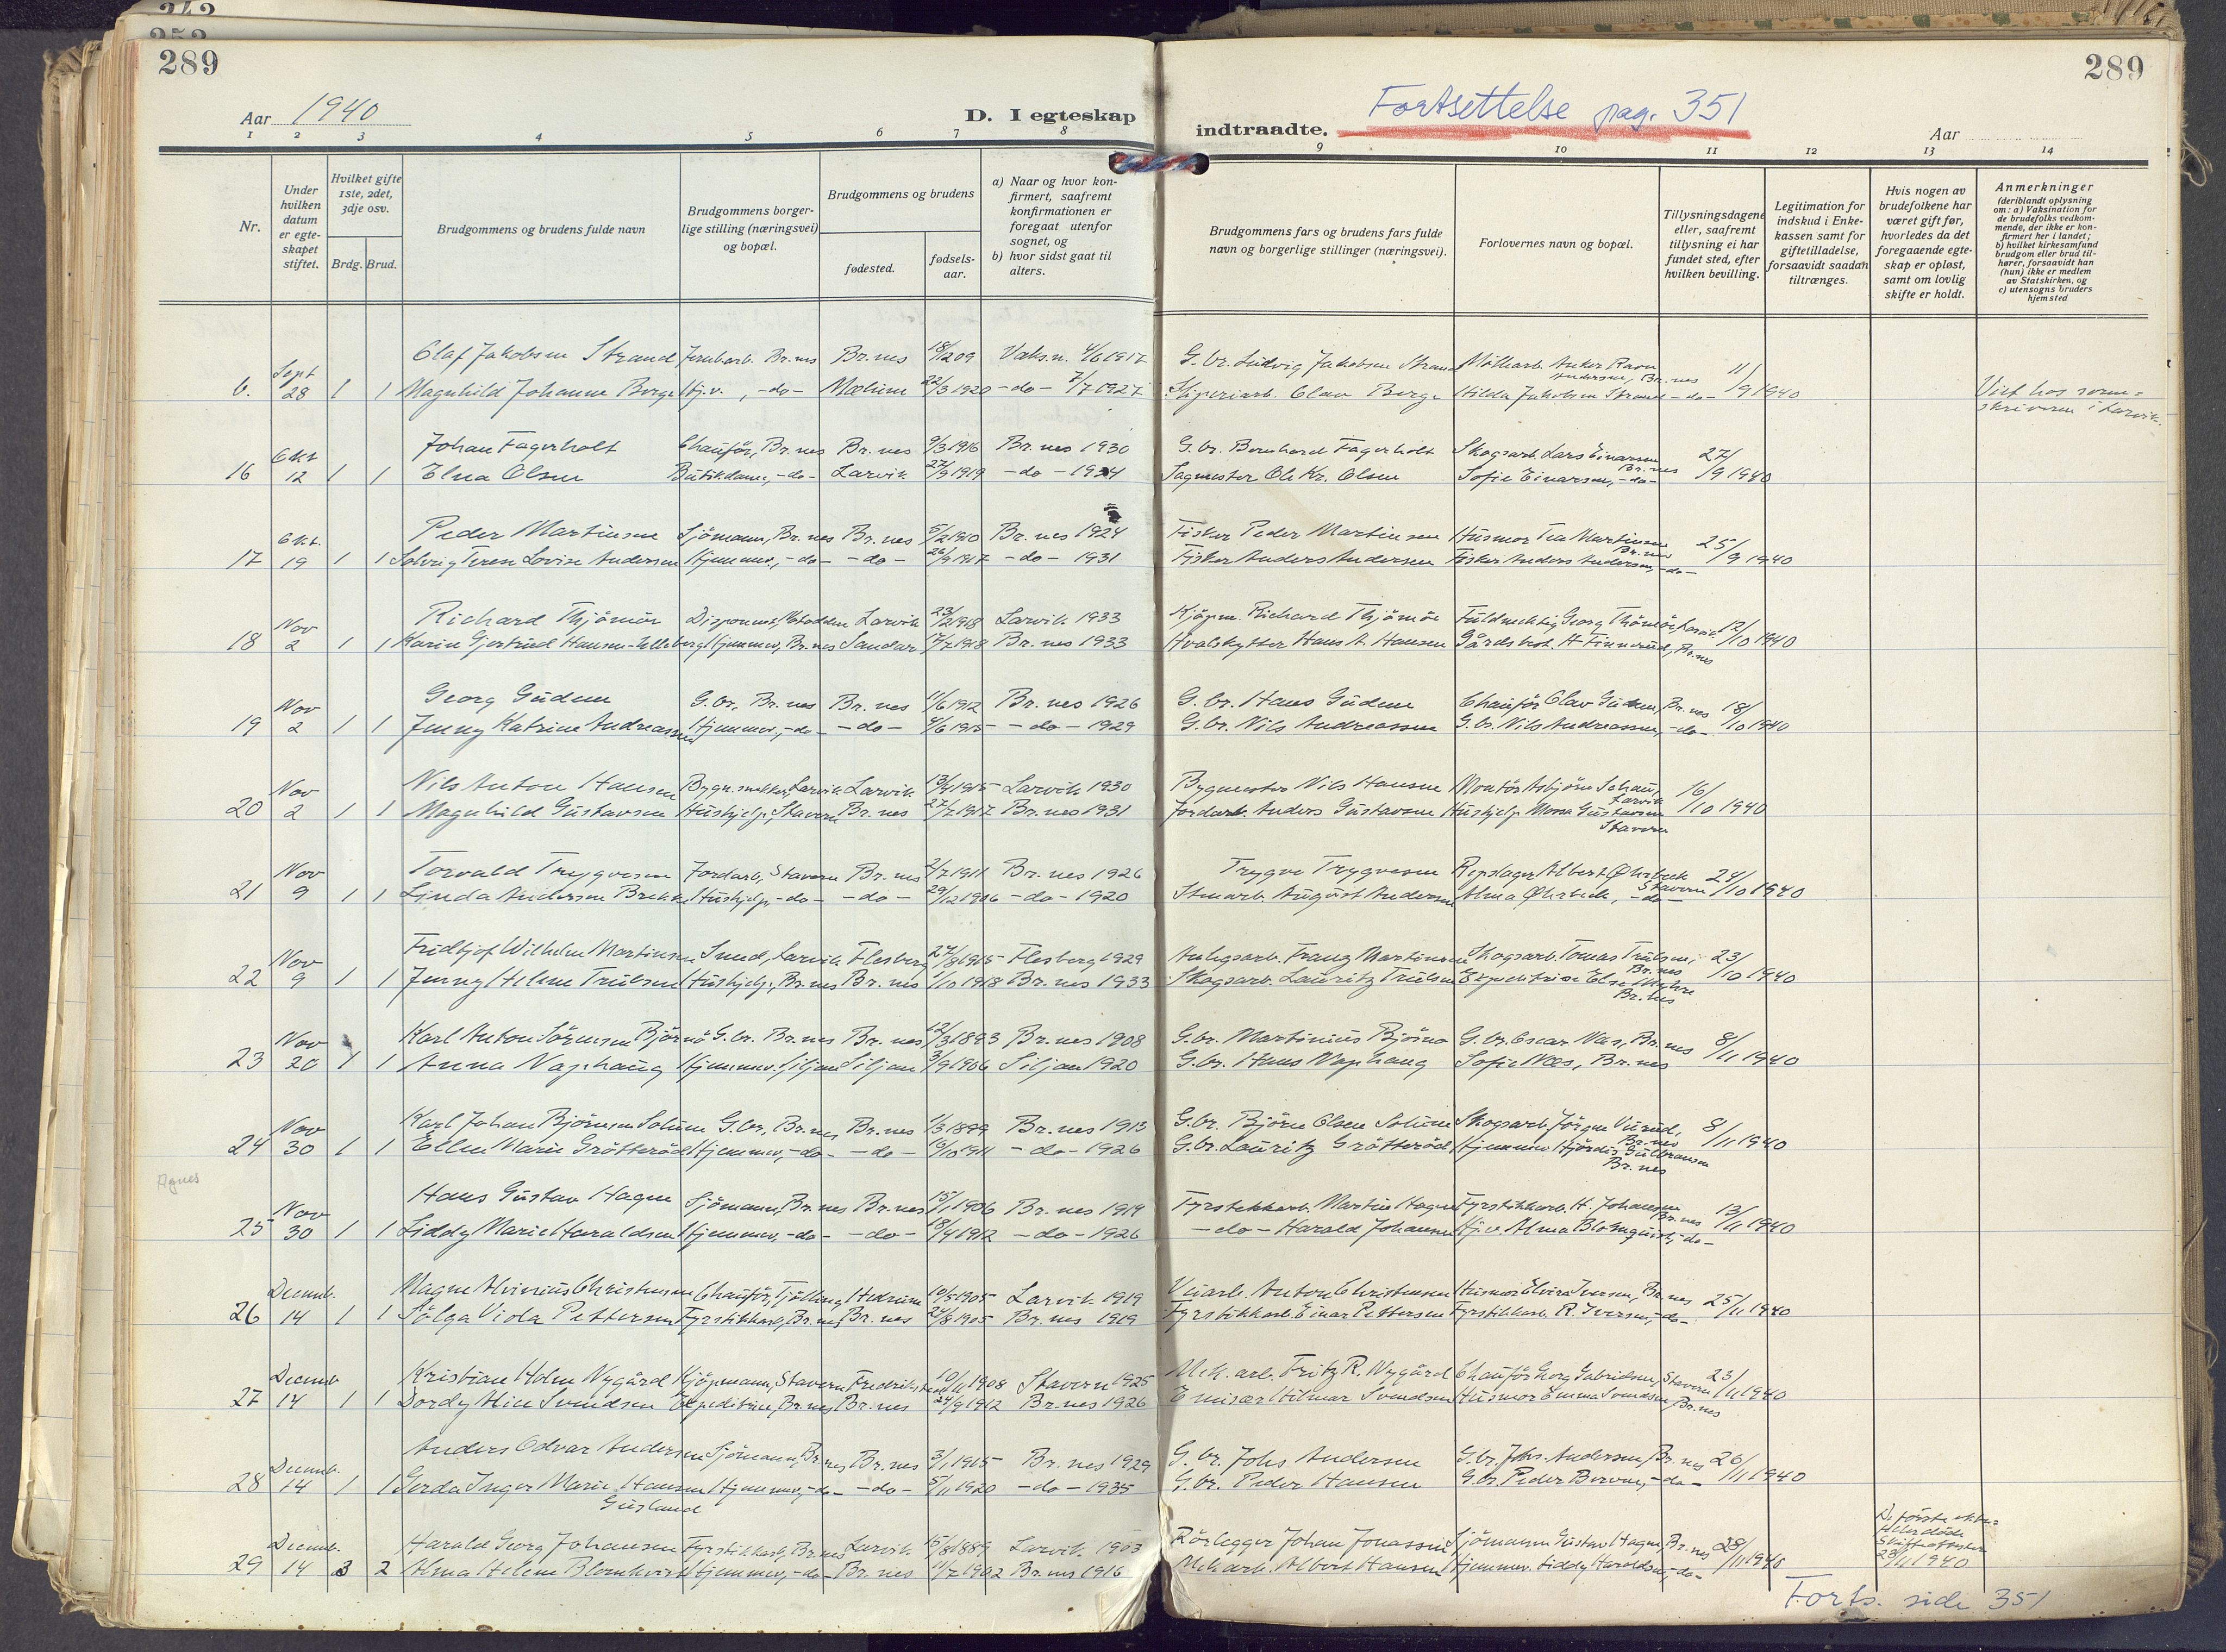 242
252
289
289
Aar 1940
D. I egteskap
indtraadte.
Fortsettelse pag. 351
Aar
1 2 3 4 5 6 7 8 9 10 11 12 13 14
Nr.
Under hvilken datum er egteskapet stiftet.
Hvilket gifte 1ste, 2det, 3dje osv.
Brdg. Brud.
Brudgommens og brudens fulde navn
Brudgommens borgerlige stilling (næringsvei) og bopæl.
Brudgommens og brudens
fødested.
fødsels-aar.
a) Naar og hvor konfirmert, saafremt konfirmationen er foregaat utenfor sognet, og
b) hvor sidst gaat til alters.
Brudgommens fars og brudens fars fulde navn og borgerlige stillinger (næringsvei).
Forlovernes navn og bopæl.
Tillysningsdagene eller, saafremt tillysning ei har fundet sted, efter hvilken bevilling.
Legitimation for indskud i Enkekassen samt for giftetilladelse, forsaavidt saadan tiltrænges.
Hvis nogen av brudefolkene har været gift før, hvorledes da det foregaaende egteskap er opløst, samt om lovlig skifte er holdt.
Anmerkninger (deriblandt oplysning om: a) Vaksination for de brudefolks vedkommende, der ikke er konfirmert her i landet; b) hvilket kirkesamfund brudgom eller brud tilhører, forsaavidt han (hun) ikke er medlem av Statskirken, og c) utensogns bruders hjemsted
Olaf Jakobsen Strand Br. nes Br. nes 18/12 09 4/6 1917 G. br. Ludvig Jakobsen Strand Anker Ravn Andersen, Br. nes
6. Sept 28 1 1 Magnhild Johanne Berge Hj.v., -do- 22/3 1920 -do- 1927 Olav Berge Hilda Jakobsen Strand -do- 11/9 1940 Viet hos sorenskriveren i Larvik.
Johan Fagerholt Chaufør, Br. nes Br. nes 9/3 1916 Br. nes 1930 G. br. Bernhard Fagerholt Skogsarb. Lars Einarsen Br. nes
16 Okt 12 1 1 Elna Olsen Butikdame, -do- Larvik 27/9 1919 -do- 1934 Sagmester Ole Kr. Olsen Sofie Einarsen, -do- 27/9 1940
Peder Martinsen Sjömann, Br. nes Br. nes 5/2 1910 Br. nes 1924 Fisker Peder Martinsen Husmor Tea Martinsen Br. nes
17 Okt. 19 1 1 Solveig Terese Lovise Andersen Hjemmev., -do- -do- 26/9 1917 -do- 1931 Fisker Anders Andersen Fisker Anders Andersen, -do- 25/9 1940
Richard Thjömöe Larvik 23/2 1918 Larvik 1933 Kjöpm. Richard Thjömöe Fuldmektig Georg Thömöe, Larvik
18 Nov 2 1 1 Karin Gjertrud Hansen-Ulleberg Hjemmev., Br. nes Sandar 17/7 1918 Br. nes 1933 Hvalskytter Hans A. Hansen Gårdsbest. H. Finnerud, Br. nes 12/10 1940
Georg Gudem G. br., Br. nes Br. nes 11/6 1912 Br. nes 1926 G. br. Hans Gudem Chauför Olav Gudem, Br. nes
19 Nov 2 1 1 Jenny Katrine Andreassen Hjemmev., -do- -do- 4/6 1915 -do- 1929 G. br. Nils Andreassen G. br. Nils Andreassen, -do- 18/10 1940
Nils Anton Hansen Bygn.snekker, Larvik Larvik 13/4 1915 Larvik 1930 Bygmester Nils Hansen Montör Asbjörn Schau, Larvik
20 Nov 2 1 1 Magnhild Gustavsen Hushjelp, Stavern Br. nes 27/7 1917 Br. nes 1931 Jordarb. Anders Gustavsen Hushjelp Mona Gustavsen Stavern 16/10 1940
Torvald Trygvesen Jordarb., Stavern Br. nes 2/7 1911 Br. nes 1926 Trygve Trygvesen Repslager Albert Øhrbeck Stavern
21 Nov 9 1 1 Linda Andersen Brekke Hushjelp, -do- -do- 29/12 1906 -do- 1920 Stenarb. August Andersen Alma Øhrbeck, -do- 24/10 1940
Fridtjof Wilhelm Martinsen Smed, Larvik Flesberg 27/8 1915 Flesberg 1929 Anlegsarb. Franz Martinsen Skogsarb. Tomas Trulsen, Br. nes
22 Nov 9 1 1 Jenny Helene Trulsen Hushjelp, Br. nes Br. nes 1/10 1918 Br. nes 1933 Skogsarb. Lauritz Trulsen Expeditrise Else Myhre Br. nes 23/10 1940
Karl Anton Sörensen Björnö G. br. Br. nes Br. nes 12/3 1893 Br. nes 1908 G. br. Martinius Björnö G. br. Oscar Næs, Br. nes
23 Nov 20 1 1 Anna Naphaug Hjemmev. Siljan Siljan 3/9 1906 Siljan 1920 G. br. Hans Naphaug Sofie Næs, Br. nes 8/11 1940
Karl Johan Björnsen Solum G. br., Br. nes Br. nes 1/3 1899 Br. nes 1913 G. br. Björn Olsen Solum Skogsarb. Jörgen Vierud, Br. nes
24 Nov 30 1 1 Ellen Marie Grötteröd Hjemmev., -do- -do- 16/10 1911 -do- 1926 G. br. Lauritz Grötteröd Hjemmev Hjördis Gulbransen Br. nes 8/11 1940
Agnes
Hans Gustav Hagen Sjömann, Br. nes Br. nes 15/1 1906 Br. nes 1919 Fyrstikkarb. Martin Hagen Fyrstikkarb. H. Johansen Br. nes
25 Nov 30 1 1 Liddy Marie Haraldsen Hjemmev., -do- -do- 18/4 1912 -do- 1926 -do- Harald Johansen Hj.v. Alma Blomquist, -do- 13/11 1940
Magne Alvinius Christensen Chauför, Tjölling Hedrum 10/5 1905 Larvik 1919 Anton Christensen Husmor Elvira Iversen, Br. nes
26 Decemb. 14 1 1 Sölga Viola Pettersen Fyrstikkarb., Br. nes Br. nes 24/8 1905 Br. nes 1919 Fyrstikkarb. Einar Pettersen Fyrstikkarb. R. Iversen, -do- 25/11 1940
Kristian Holm Nygård Kjöpmann, Stavern Fredrikstad 10/11 1908 Stavern 1925 Mek. arb. Fritz R. Nygård Chauför Georg Gabrielsen, Stavern
27 Decemb 14 1 1 Dordy Alice Svendsen Expeditrise, Br. nes Br. nes 24/9 1912 Br. nes 1926 Emisær Hilmar Svendsen Husmor Emma Svendsen, Br. nes 23/11 1940
Anders Odvar Andersen Sjömann, Br. nes Br. nes 3/1 1915 Br. nes 1929 G. br. Johs Andersen G. br. Johs. Andersen, Br. nes
28 Decemb. 14 1 1 Gerda Inger Marie Hansen Gusland Hjemmev., -do- -do- 5/11 1920 -do- 1935 G. br. Peder Hansen G. br. Peder -do- 26/11 1940
Harald Georg Johansen Fyrstikkarb., Br. nes Larvik 15/8 1889 Larvik 1903 Rörlegger Johan Jonassen Sjömann Gustav Hagen, Br. nes De förste ekte- döde Skifteattester 28/11 1940
29 Decemb. 14 3 2 Alma Helene Blomkvist Hjemmev., -do- Br. nes 11/7 1902 Br. nes 1916 Mek. arb. Albert Hansen Hjemmev. Liddy Haraldsen, -do- 28/11 1940
Forts. side 351